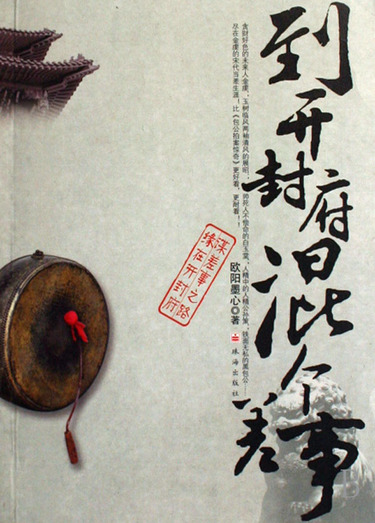 到开封府混个差事
贪财好色的未来人金虔、玉树临风两袖清风的展昭、帅死人不偿命的白玉堂、人精中的人精公孙策、铁面无私的黑包公……
尽在金虔的宋代当差生涯！比《包公拍案惊奇》更好看、更耐看！！
谋差事之路
缘在开封府
欧阳墨心◎著
珠海出版社